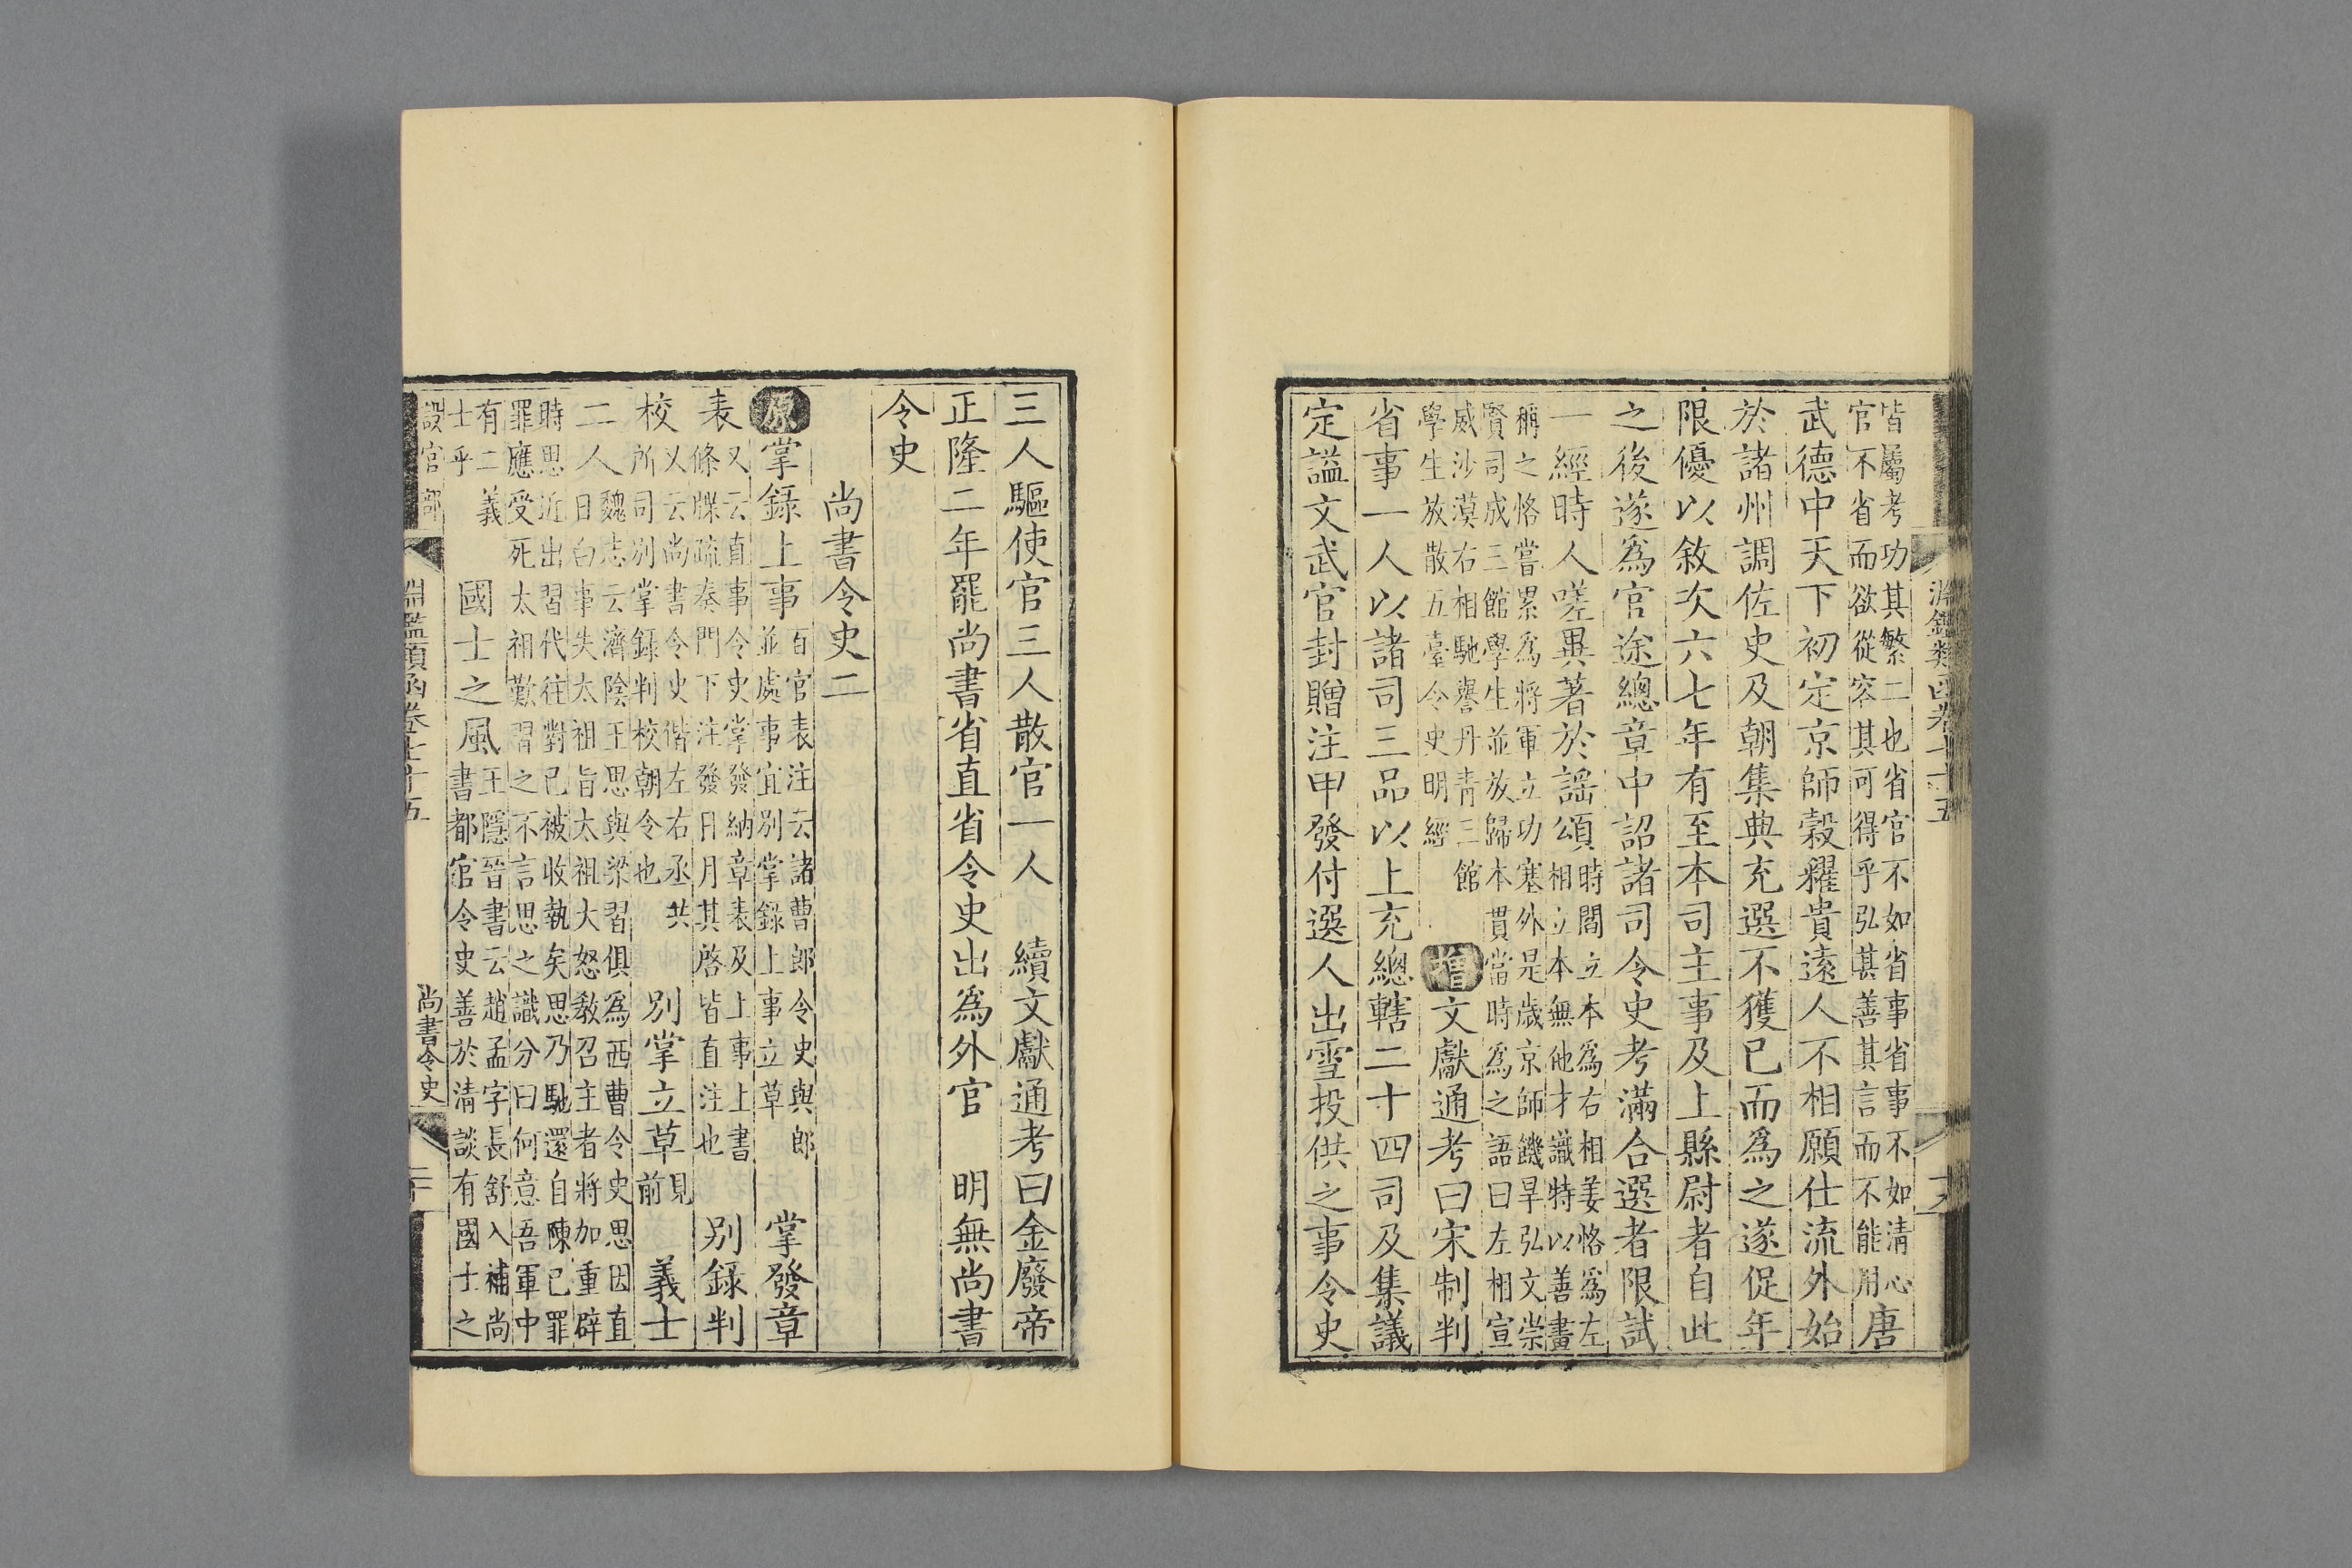 皆屬考功其繁二也省官不如省事省事不如清心
官不省而欲從容其可得乎弘甚善其言而不能用
唐
武德中天下初定京師穀糴貴遠人不相願仕流外始
於諸州調佐史及朝集典充選不獲已而爲之遂促年
限優以敘次六七年有至本司主事及上縣尉者自此
之後遂爲官途總章中詔諸司令史考滿合選者限試
一經時人嗟異著於謠頌
時閻立本爲右相姜恪爲左
相立本無他才識特以善畫
稱之恪嘗累爲將軍立功塞外是歲京師饑旱弘文崇
賢司成三館學生並放歸本貫當時爲之語曰左相宣
威沙漠右相馳譽丹青三館
學生放散五臺令史明經
增文獻通考曰宋制判
省事一人以諸司三品以上充總轄二十四司及集議
定謚文武官封贈注甲發付選人出雪投供之事令史
三人驅使官三人散官一人　續文獻通考曰金廢帝
正隆二年罷尚書省直省令史出爲外官　明無尚書
令史
尚書令史二
原掌錄上事
百官表注云諸曹郎令史與郎
並處事宜別掌錄上事立草
掌發章
表
又云直事令史掌發納章表及上事上書
條牒疏奏門下注發日月其啓皆直注也
別錄判
校
又云尚書令史偕左右丞共
所司別掌錄判校朝令也
別掌立草
見
前
義士
二人
魏志云濟陰王思與梁習俱爲西曹令史思因直
日白事失太祖旨太祖大怒教召主者將加重辟
時思近出習代往對已被收執矣思乃馳還自陳已罪
罪應受死太祖歎習之不言思之識分曰何意吾軍中
有二義
士乎
國士之風
王隱晉書云趙孟字長舒入補尚
書都官令史善於清談有國士之
設官部
淵鑑類函卷七十五
尚書令史
二十